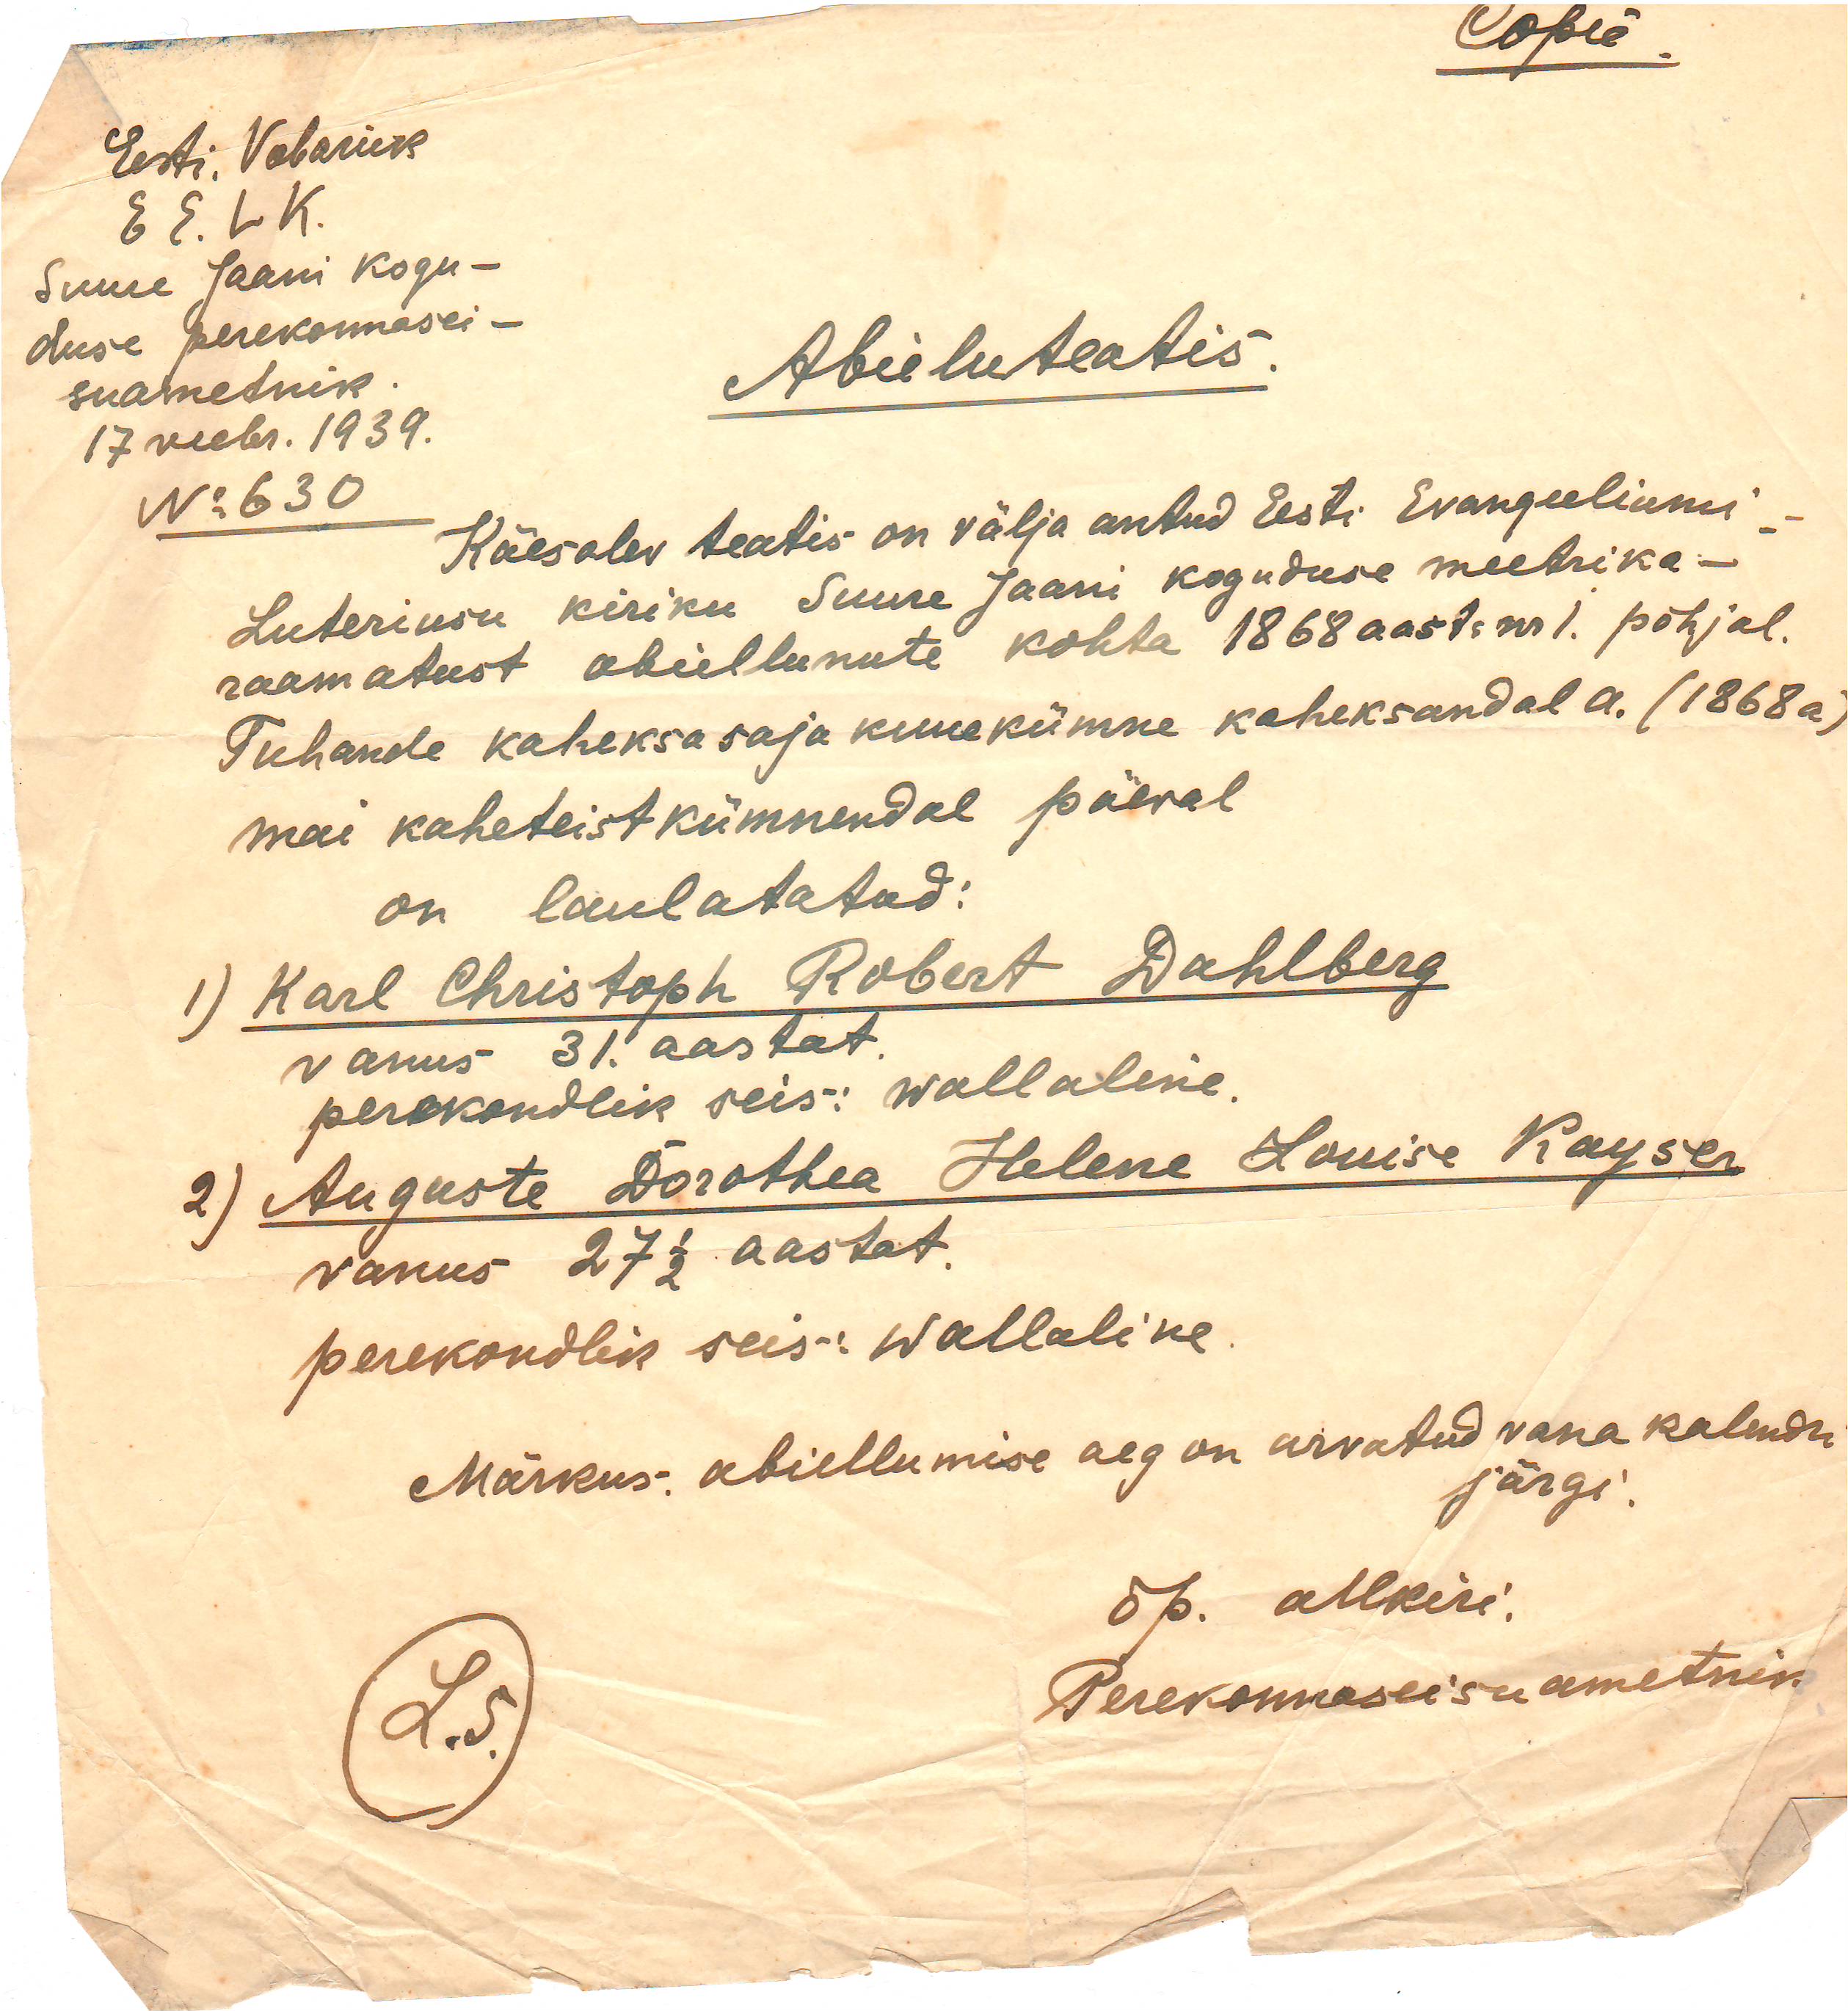 Copie.
Eesti. Vabariik
E E. L K.
Suure Jaani kogu-
duse perekonnasei-
suametnik.
17 veebr. 1939.
No 630
Abieluteatis.
Käesolev teatis on välja antud Eesti Evangeeliumi-
Luteriusu kiriku Suure Jaani koguduse meetrika-
raamatust abiellunute kohta 1868 aast: nr 1. põhjal.
Tuhande kaheksasaja kuuekümne kaheksandal a. (1868 a)
mai kaheteistkümnendal päeval
on laulatatud:
1) Karl Christoph Robert Dahlberg
vanus 31. aastat.
perekondlik seis: wallaline.
2) Auguste Dorothea Helene Louise Kayser
vanus 27½ aastat.
perekondlik seis: wallaline.
Märkus: abiellumise aeg on arvatud vana kalendri
järgi.
õp. allkiri.
Perekonnaseisuametnik
L.S.